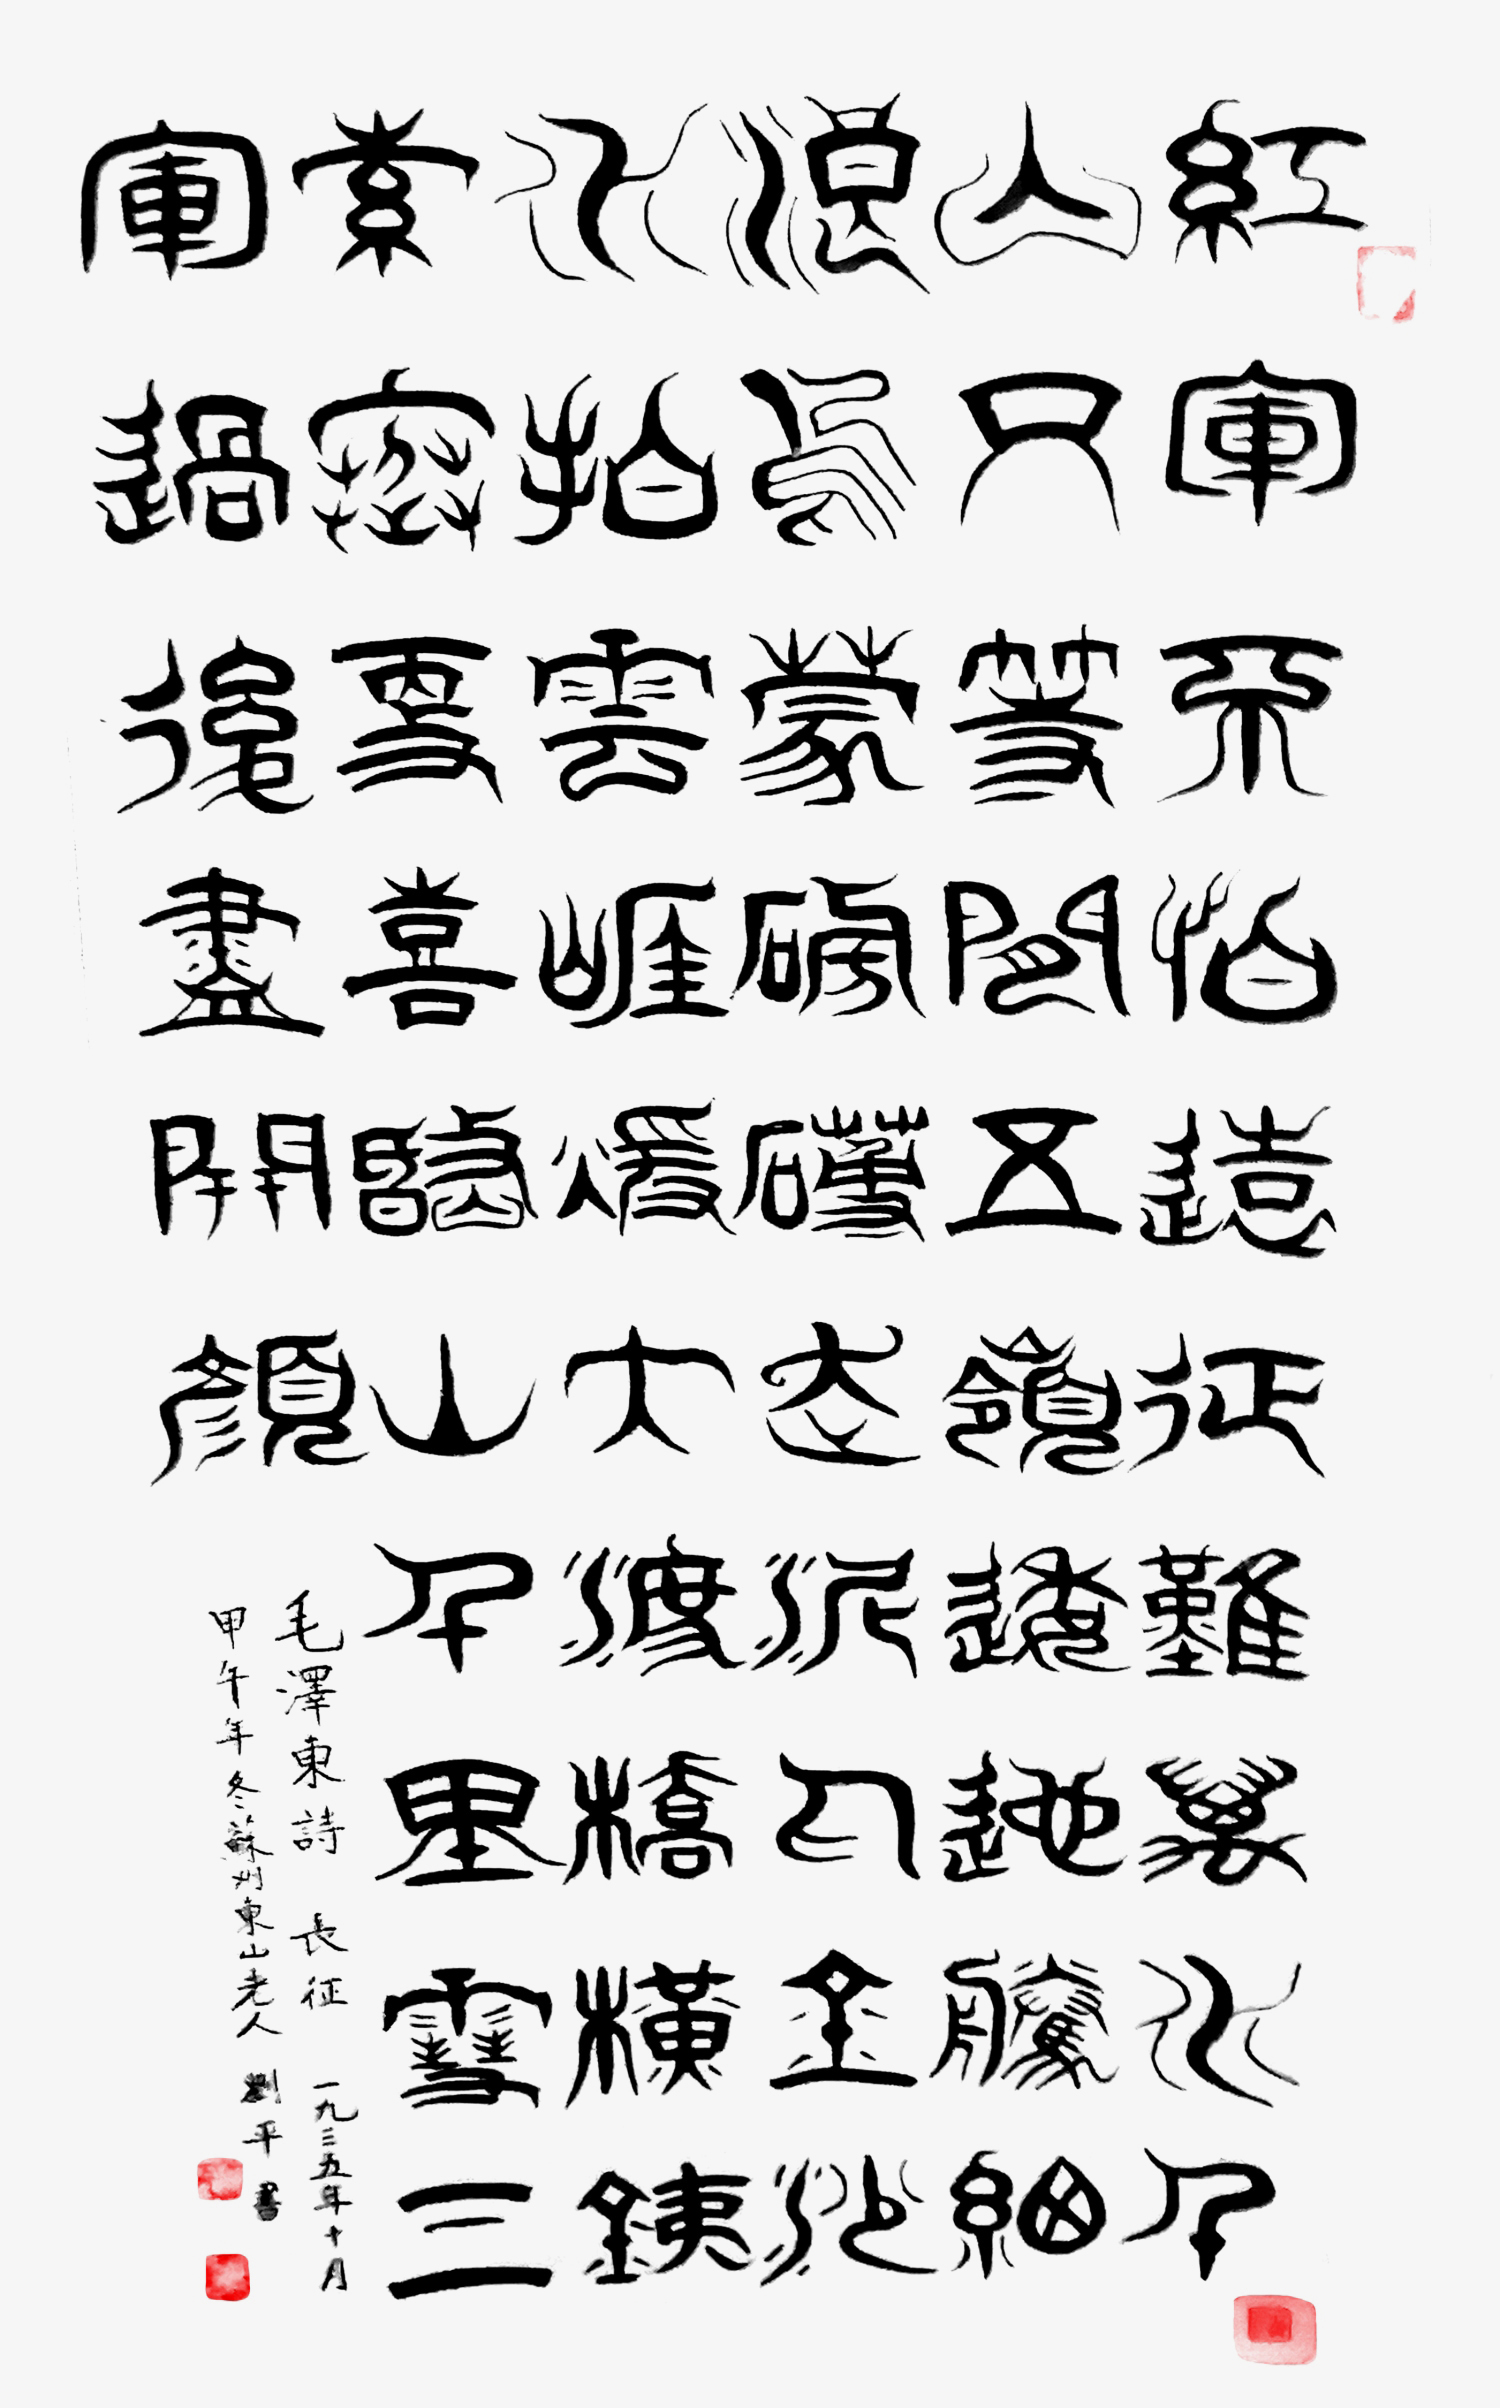 紅軍不怕遠征難萬水千
山只等閒五嶺逶迤騰細
浪烏蒙磅礴走泥丸金沙
水拍雲崖煖大渡橋橫銕
索寒更喜岷山千里雪三
軍過後盡開顏
毛澤東詩 長征 一九三五年十月
甲午年冬蘇州東山老人 劉平書